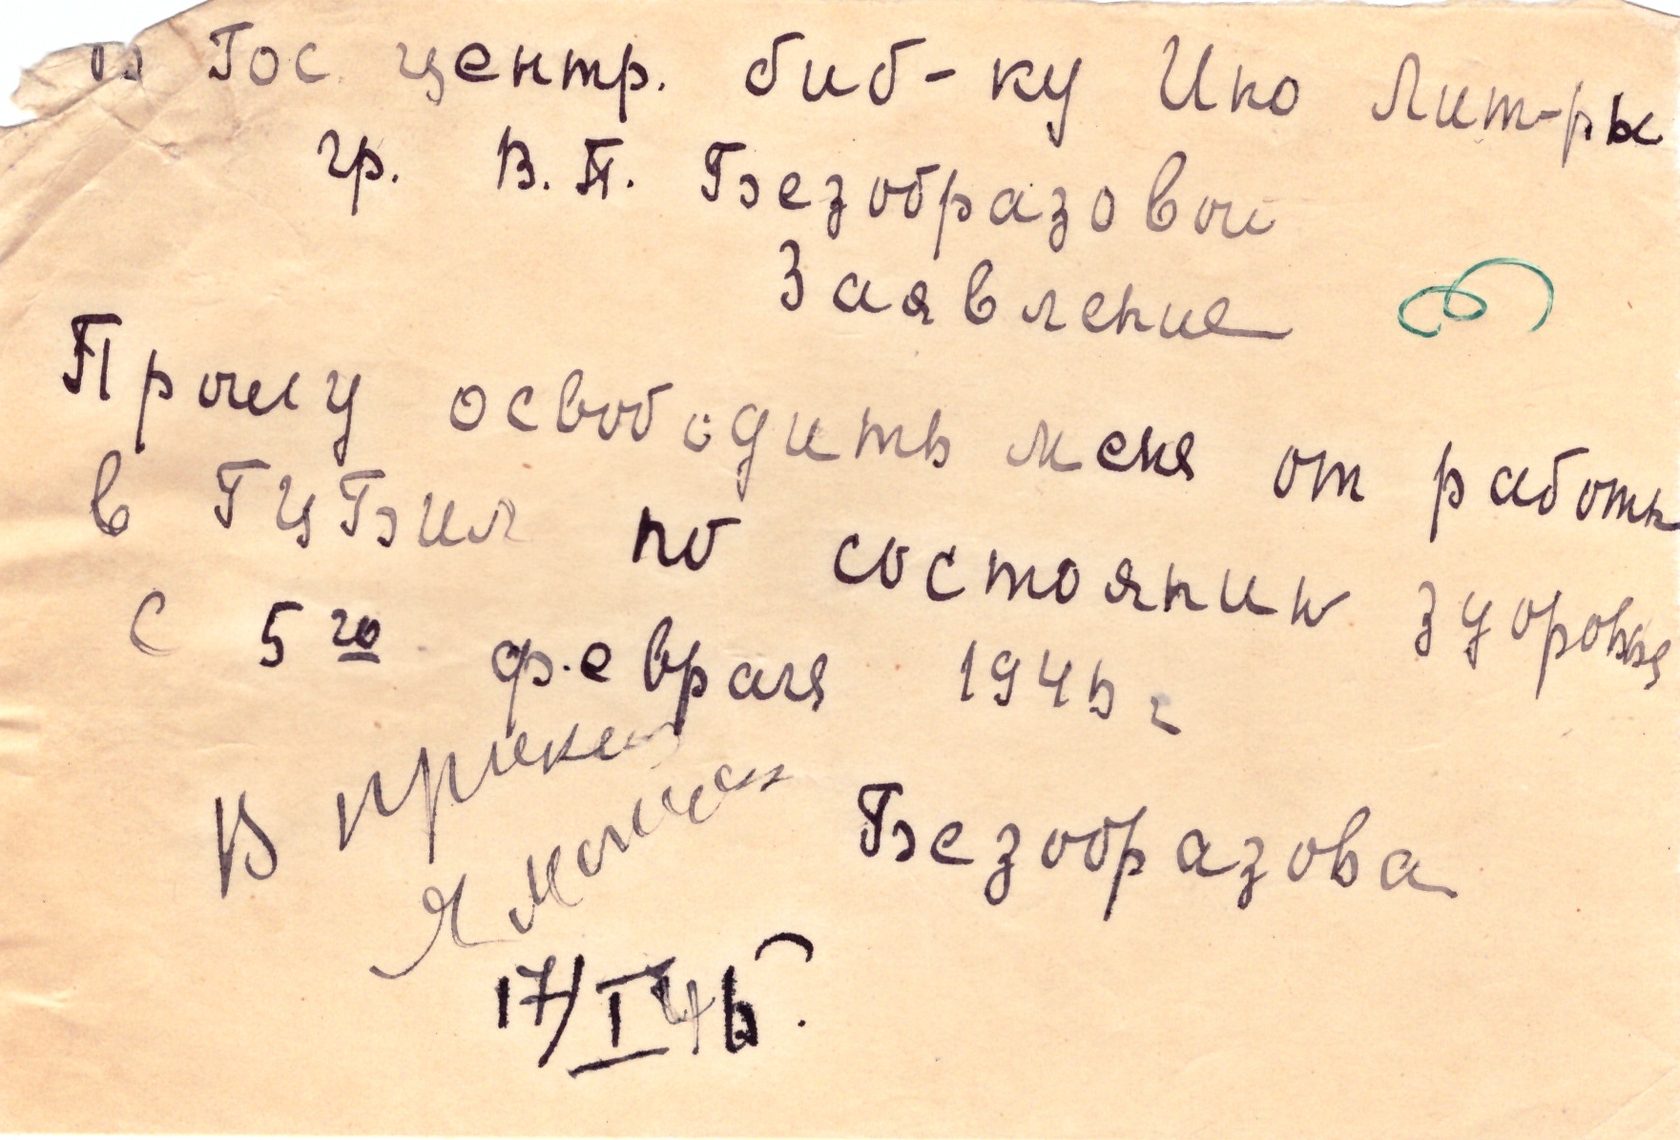 в Гос. центр. биб-ку Ино Лит-ры
гр. В.П. Безобразовой
Заявление
Прошу освободить меня от работы
в ГЦБИЛ по состоянии здоровья
с 5го февраля 1945 г
В приказ
Безобразова
17/I 45.